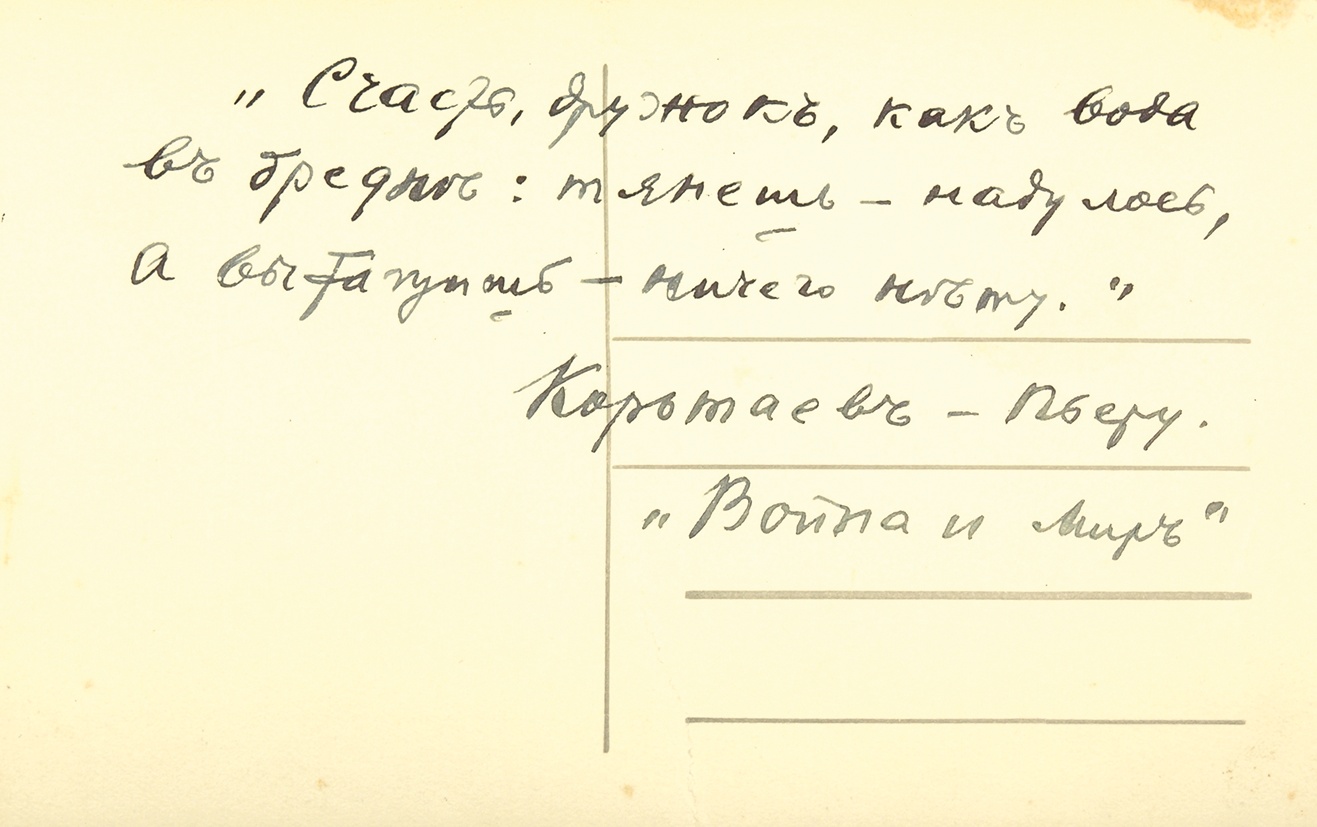 „Счастье, дружокъ, какъ вода
въ бреднѣ: тянешь – надулось,
а вытащишь – ничего нѣту."
Каратаевъ – Пьеру.
„Война и Миръ"